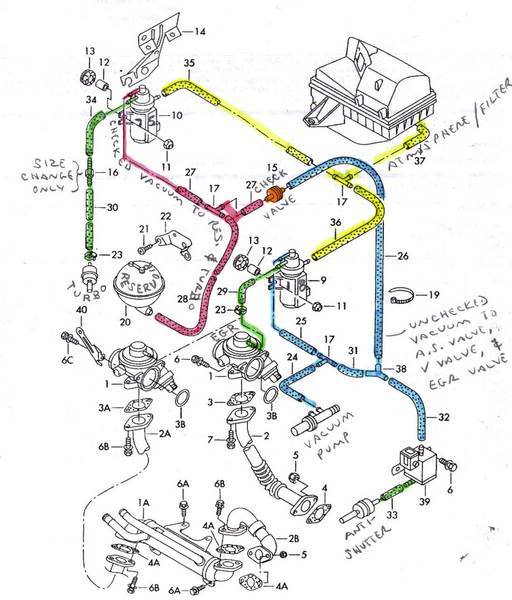 14
13
12
35
34
10
CHECKED VACUUM TO RES. & TURBO
11
ATMOSPHERE/FILTER
37
SIZE
CHANGE
ONLY
16
27
17
27
15
CHECK
VALVE
17
30
36
26
23
21
22
TURBO
RESERV
28
20
13
12
9
29
11
19
23
EGR
40
UNCHECKED
VACUUM TO
A.S. VALVE,
V VALVE, &
EGR VALVE
6C
1
6
1
25
17
24
31
38
3A
3B
3
3B
32
VACUUM
PUMP
6B
2A
7
2
5
4
39
6
33
ANTI-
SHUTTER
1A
6A
6B
4A
2B
5
4A
6B
6A
4A